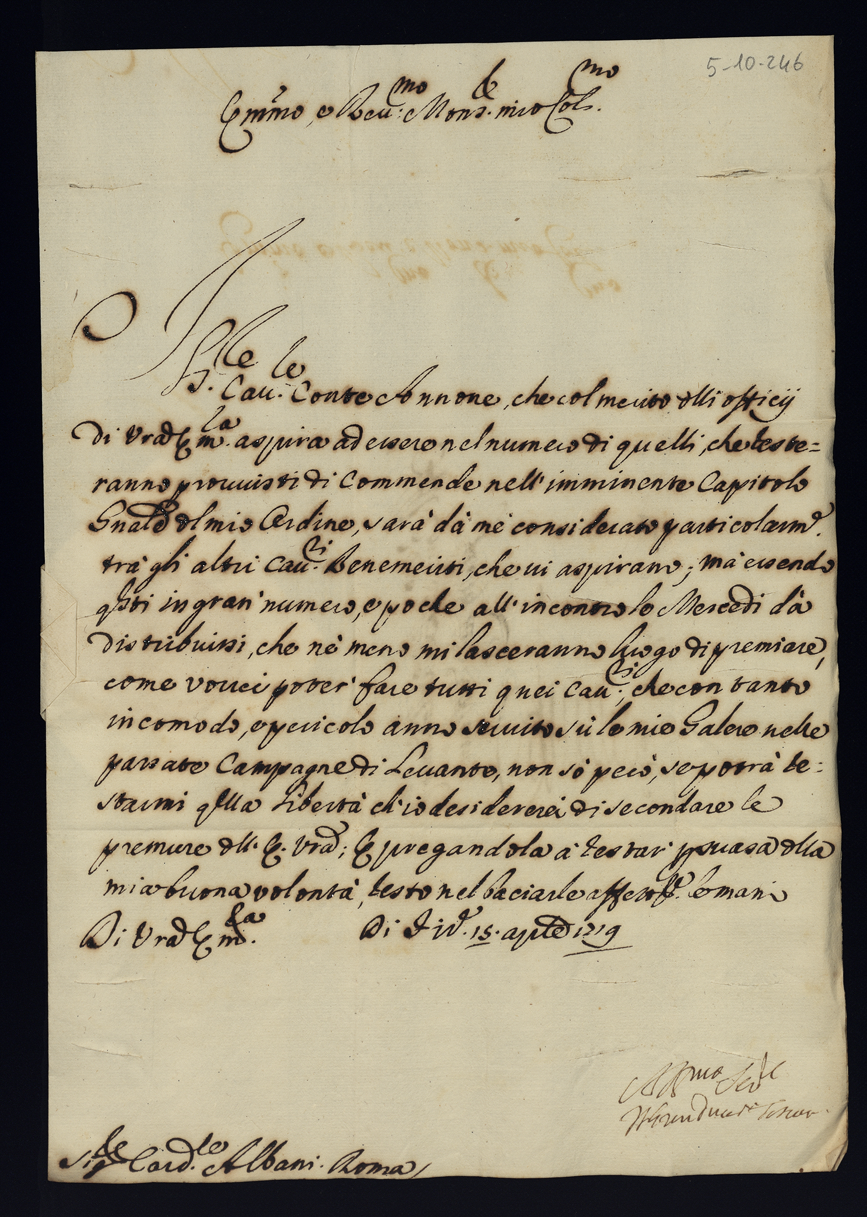 5-10-246
Emmo, e Reu:mo Mons.re mio Col.mo
Il S.r Cau.re Conte Annone, che col merito dlli officij
Di Vra Em.za aspira ad essere nel numero di quelli, che reste=
ranno prouuisti di Commende nell' imminente Capitolo
Gnale dl mio Ordine, sarà dà mè considerato particolarm.te
trà gli altri Cau.ri Benemeriti, che ui aspirano; mà essendo
qsti in gran' numero, e poche all' incontro le Mercedi dà
Distribuirsi, che nè meno mi lasceranno luogo di premiare,
come vorrei poter' fare tutti quei Cau.ri che con tanto
incomodo, e pericolo anno seruito sù le mie Galere nelle
passate Campagne di Leuante, non sò però, se potrà re=
starmi qlla Libertà ch'io desidererei di secondare le
premure dll' E. Vra; E pregandola à restar' psuasa dlla
mia buona volontà, resto nel baciarle affettuos.te le mani
Di Vra Em.za Di Fir.e 18. aprile 1719
Aff.mo Ser.re
Il Gran Duca di Toscana
Sig.re Card.le Albani. Roma